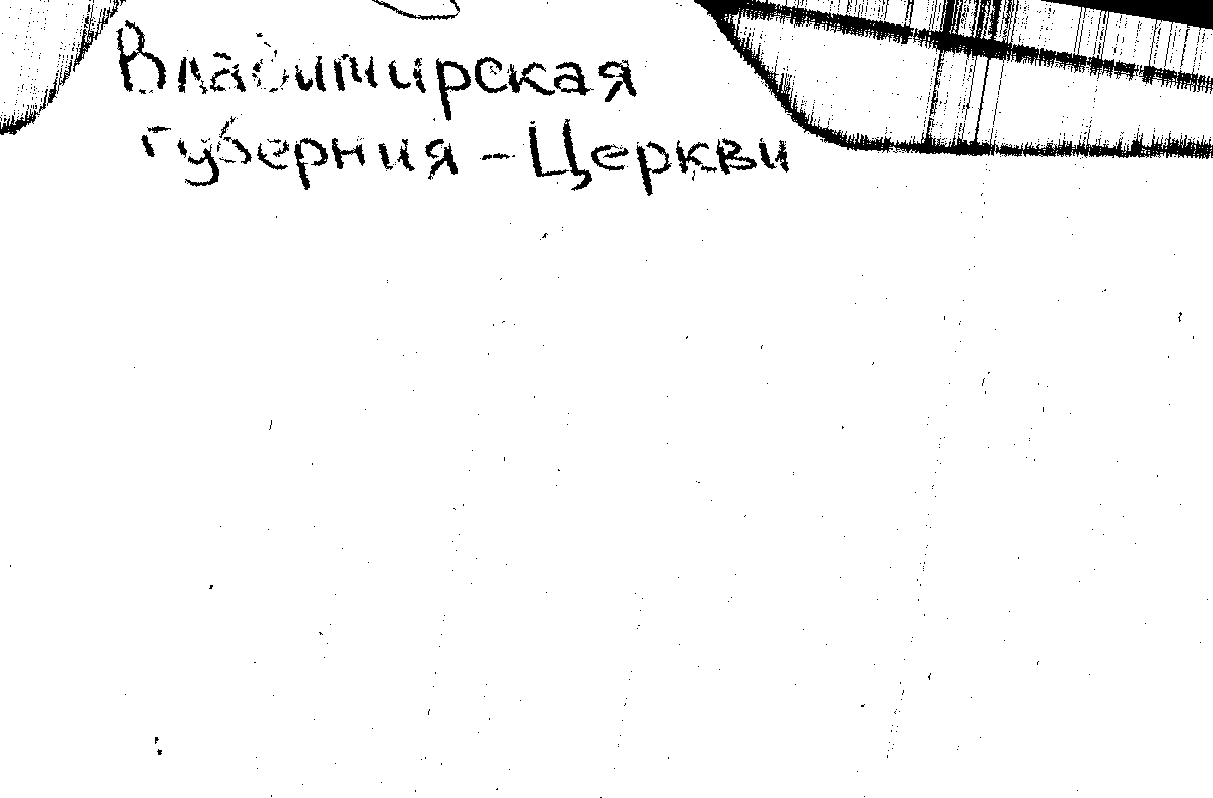 Владимирская
губерния - Церкви